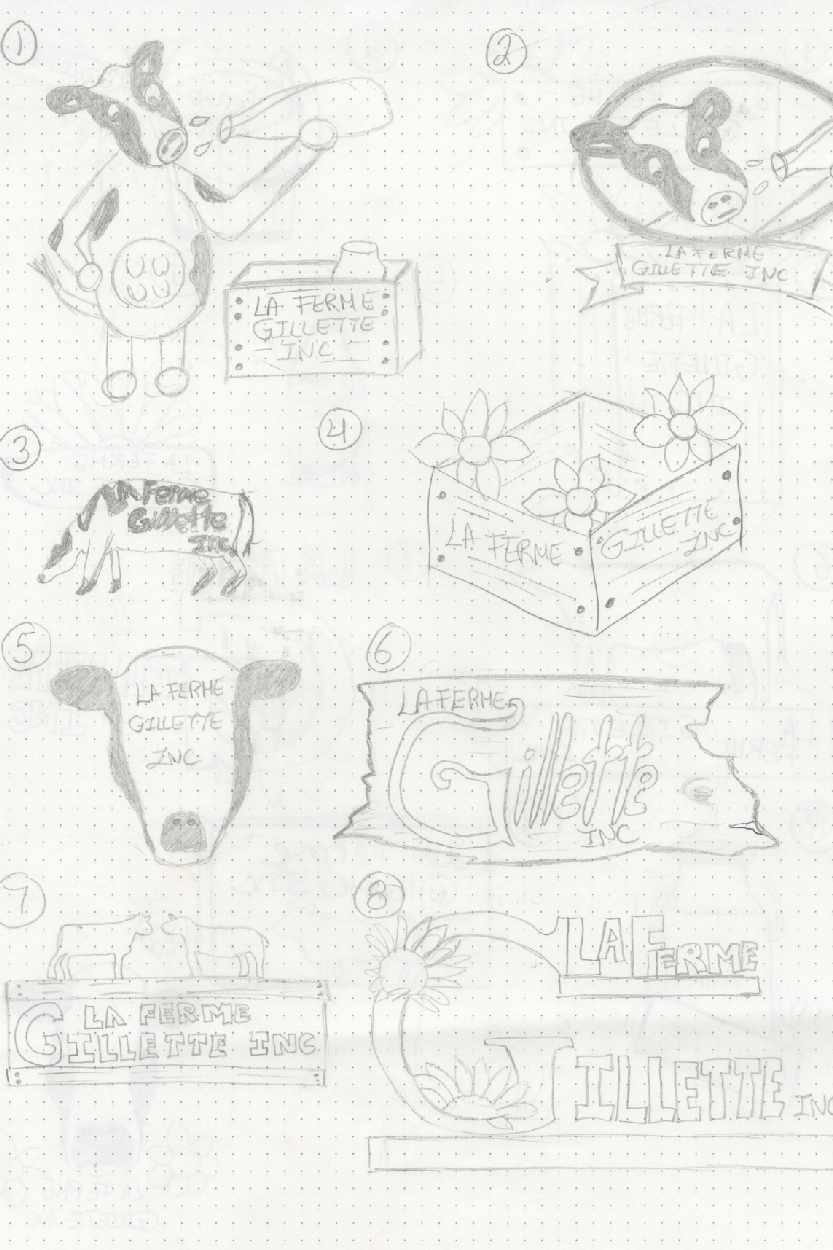 1
2
LA FERME
GILLETTE
INC
LA FERME
GILLETTE INC
3
4
La Ferme
Gillette
Inc
LA FERME
GILLETTE
INC
5
6
LA FERME
GILLETTE
INC
LA FERME
Gillette
INC
7
8
LA FERME
GILLETTE INC
LA FERME
GILLETTE INC